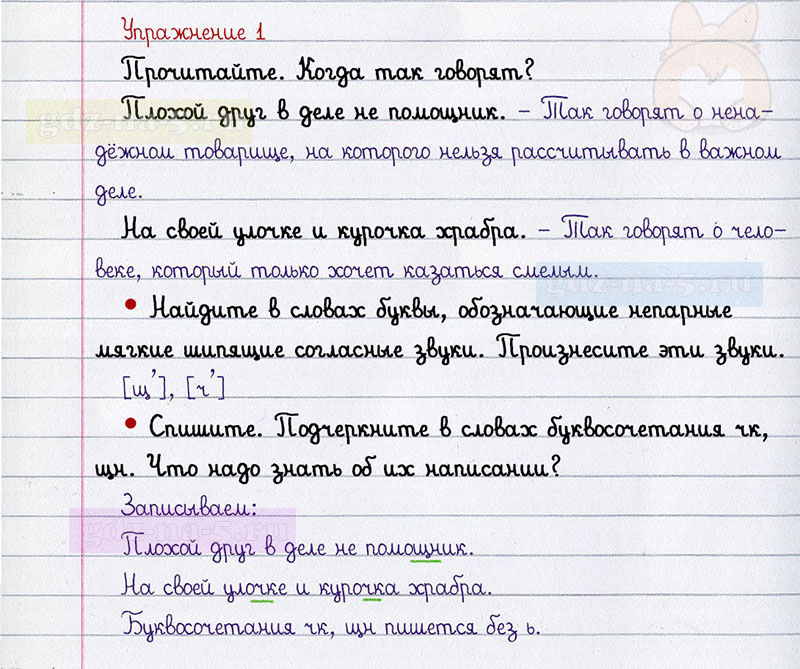 Упражнение 1
Прочитайте. Когда так говорят?
Плохой друг в деле не помощник. – Так говорят о нена-
дёжном товарище, на которого нельзя рассчитывать в важном
деле.
На своей улочке и курочка храбра. – Так говорят о чело-
веке, который только хочет казаться смелым.
• Найдите в словах буквы, обозначающие непарные
мягкие шипящие согласные звуки. Произнесите эти звуки.
[щ’], [ч’]
• Спишите. Подчеркните в словах буквосочетания чк,
щн. Что надо знать об их написании?
Записываем:
Плохой друг в деле не помощник.
На своей улочке и курочка храбра.
Буквосочетания чк, щн пишется без ь.
gdz-na-5.ru
gdz-na-5.ru
gdz-na-5.ru